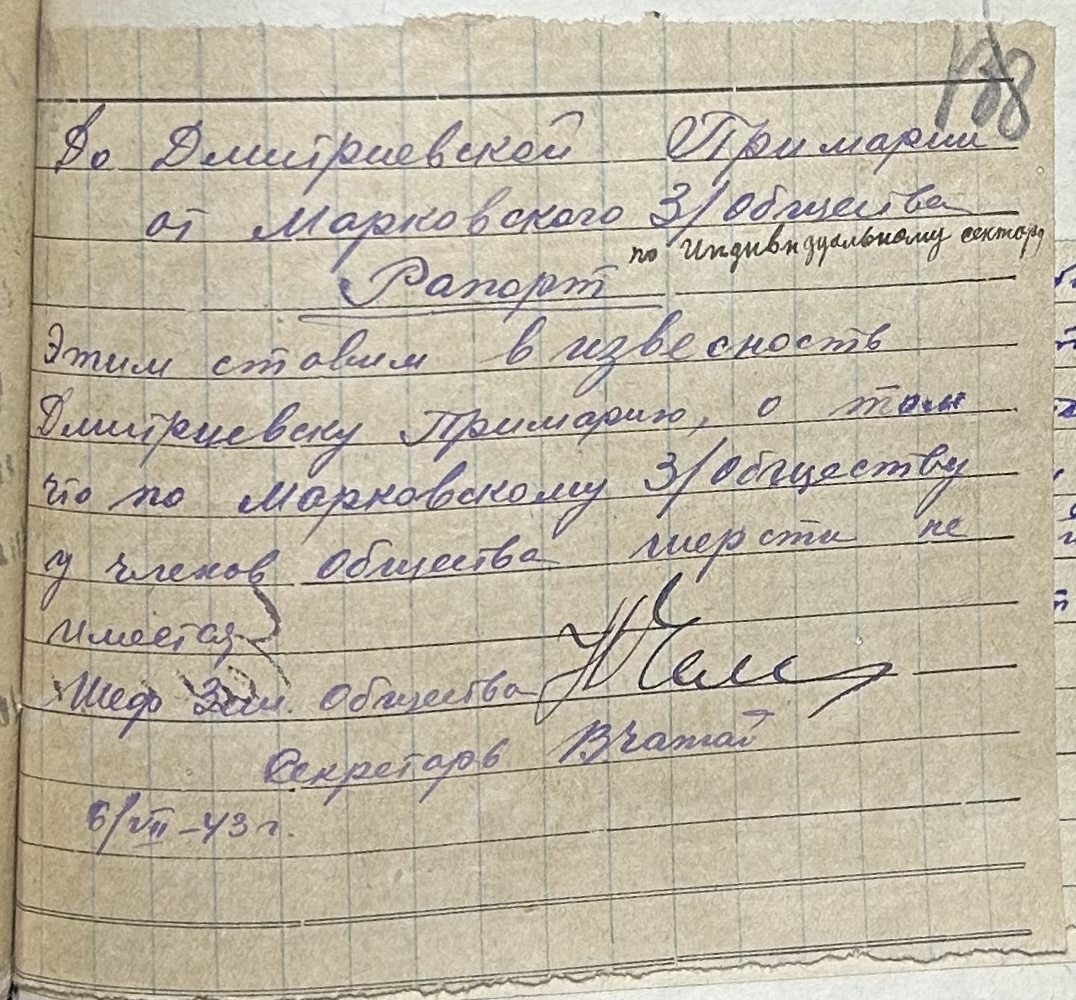 138
До Дмитриевской Примарии
от Марковского З/Общества
по индивидуальному сектору
Рапорт
Этим ставим в извесность
Дмитриевску Примарию, о том
что по Марковскому З/Обществу
у членов Общества шерсти не
имеется
Шеф Зем. Общества
Секретарь
6/VII-43 г.